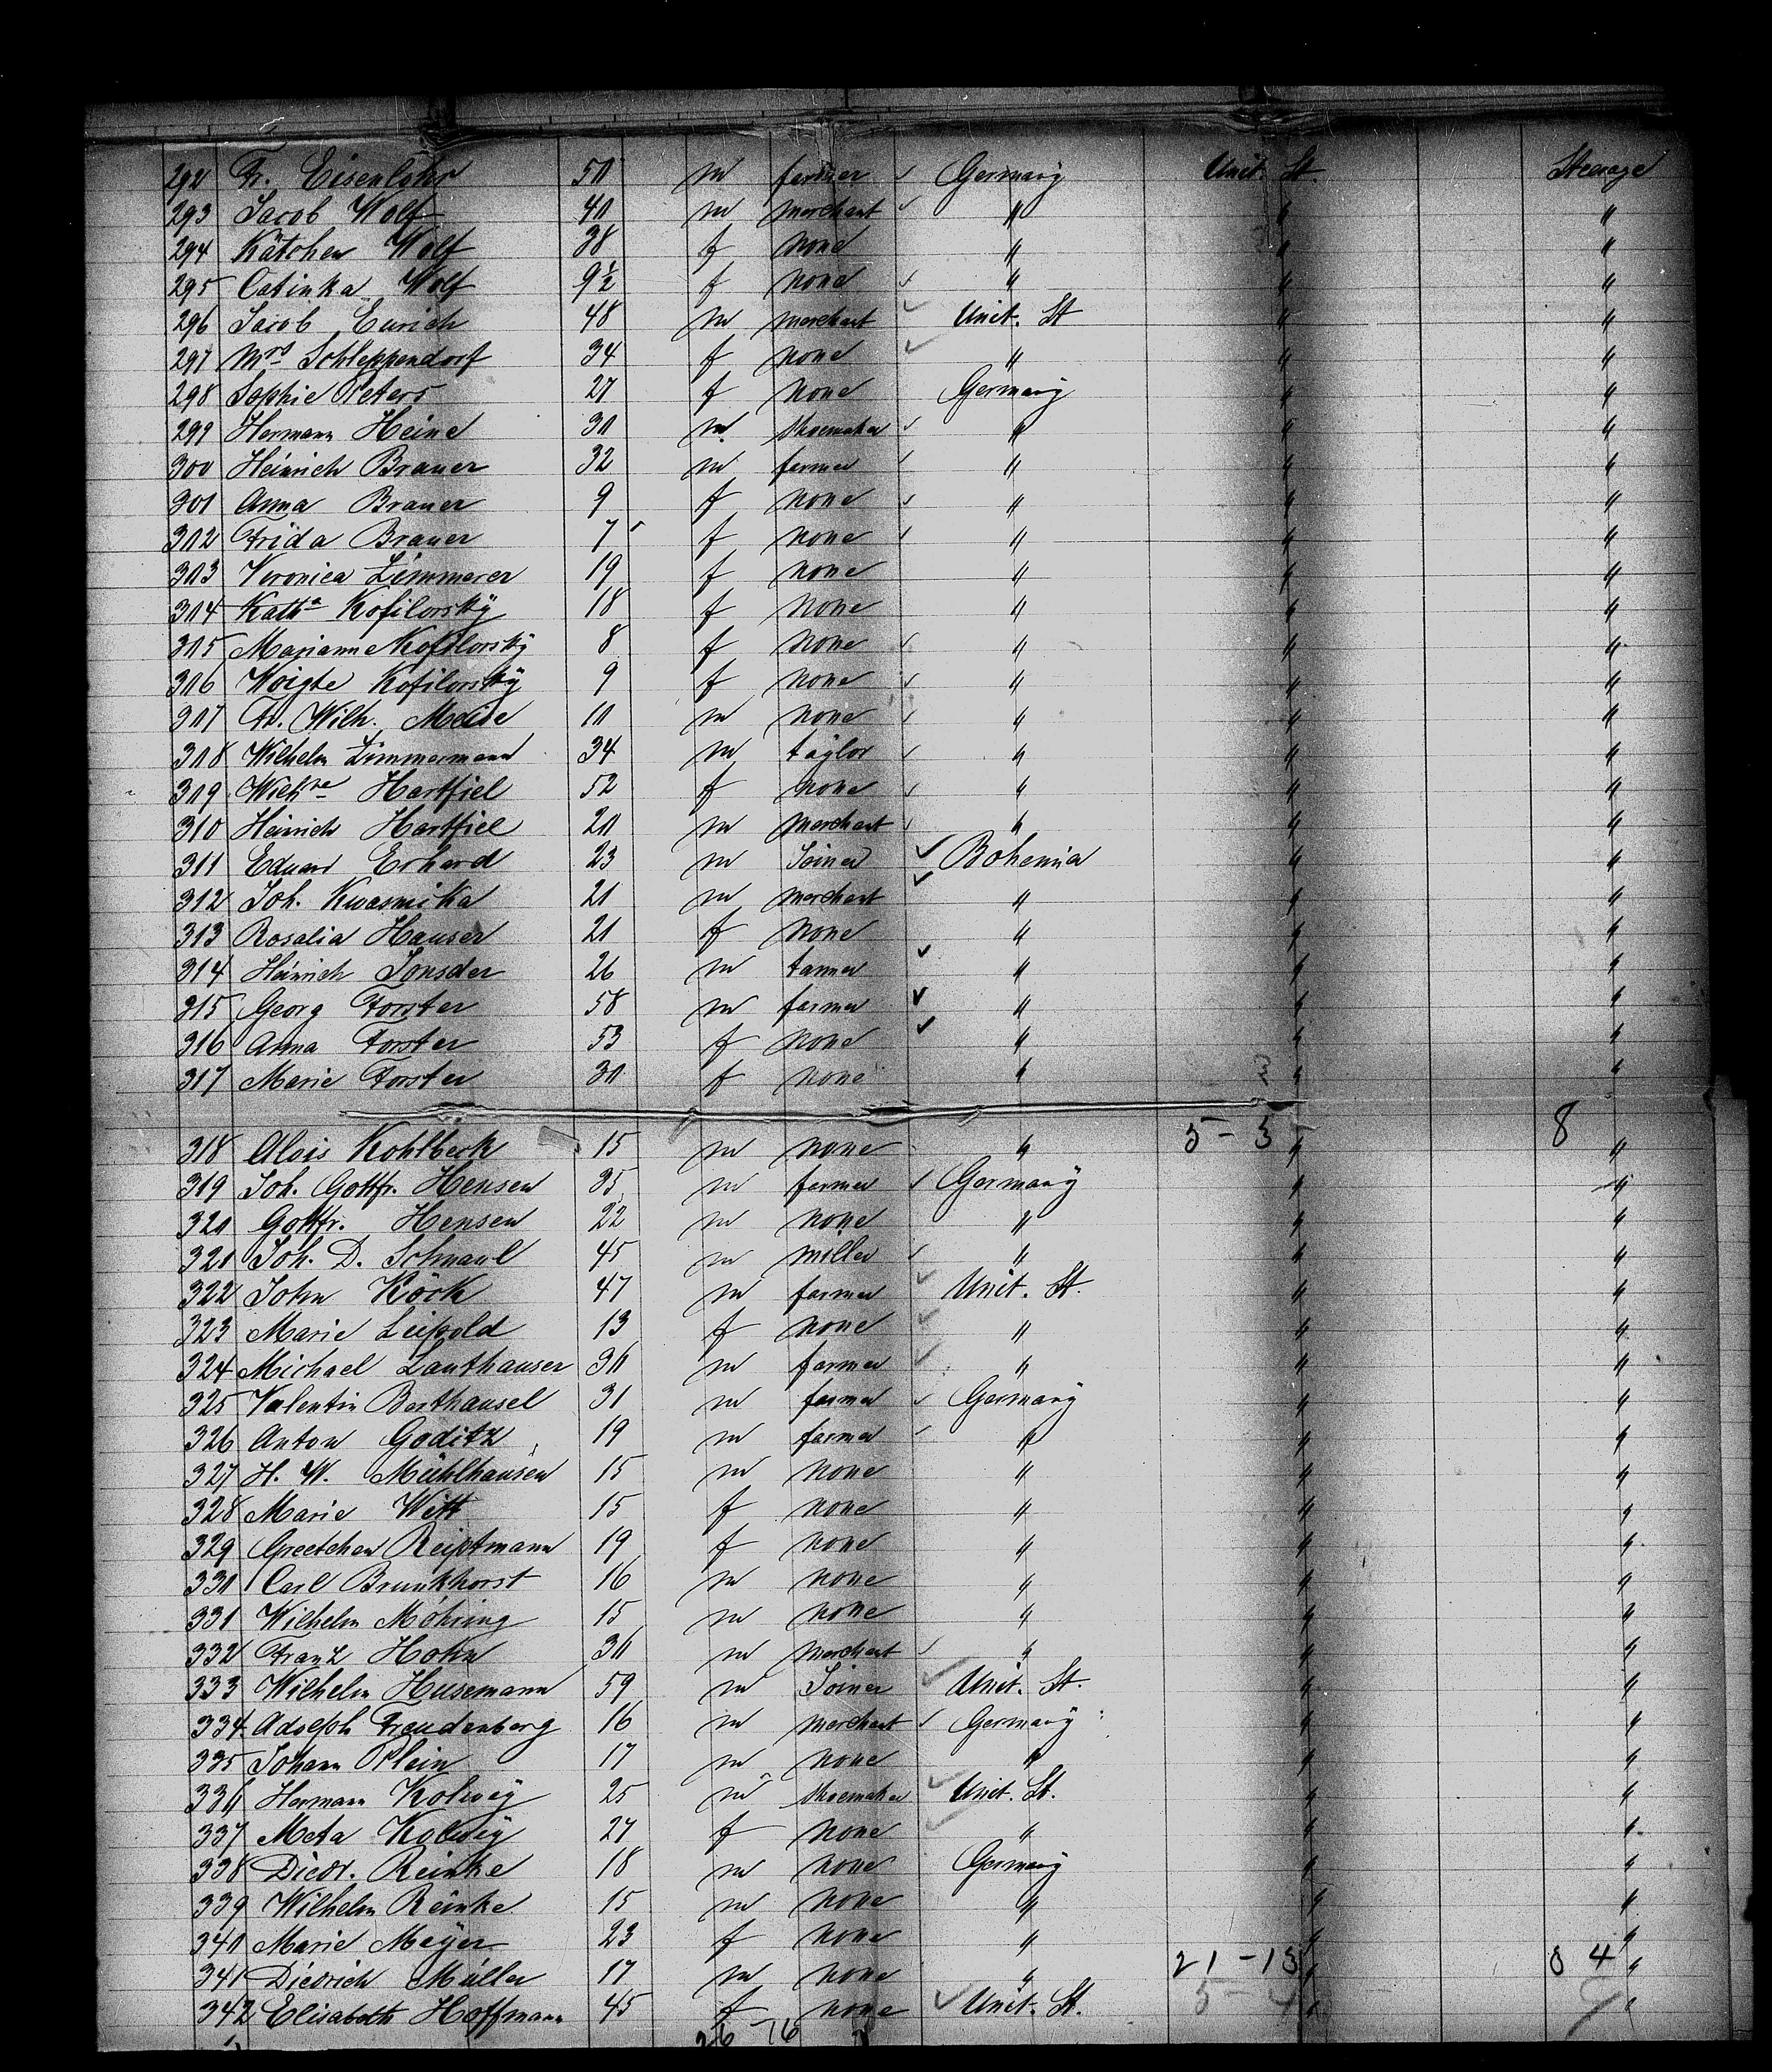 292 Fr. Eisenlohr 50 m farmer ✓ Germany Unit. St. Steerage
293 Jacob Wolf 40 m merchant ✓ " " "
294 Kätchen Wolf 38 f none " " "
295 Catinka Wolf 9½ f none ✓ " " "
296 Jacob Eurich 48 m merchant ✓ Unit. St " "
297 Mrs Schleppendorf 34 f none ✓ " " "
298 Sophie Peters 27 f none Germany " "
299 Hermann Heine 30 m Shoemaker ✓ " " "
300 Heinrich Brauer 32 m farmer ✓ " " "
301 Anna Brauer 9 f none ✓ " " "
302 Frida Brauer 7 f none ✓ " " "
303 Veronica Zimmerer 19 f none " " "
304 Katha Kofilorsky 18 f none " " "
305 Marianne Kofilorsky 8 f none ✓ " " "
306 Woigte Kofilorsky 9 f none ✓ " " "
307 Fr. Wilh. Meise 10 m none ✓ " " "
308 Wilhelm Zimmermann 34 m taylor ✓ " " "
309 Wilhne Hartfiel 52 f none ✓ " " "
310 Heinrich Hartfiel 20 m merchant ✓ " " "
311 Eduard Erhard 23 m Joiner ✓ Bohemia " "
312 Joh. Kwasnika 21 m merchant ✓ " " "
313 Rosalia Hauser 21 f none " " "
314 Heinrich Jonsder 26 m tanner ✓ " " "
315 Georg Forster 58 m farmer ✓ " " "
316 Anna Forster 53 f none ✓ " " "
317 Marie Forster 30 f none " " "
5-3 8
318 Alois Kohlbeck 15 m none " " "
319 Joh. Gottfr. Hensen 35 m farmer ✓ Germany " "
320 Gottfr. Hensen 22 m none " " "
321 Joh. D. Schnaul 45 m miller ✓ " " "
322 John Köck 47 m farmer ✓ Unit. St. " "
323 Marie Leipold 13 f none ✓ " " "
324 Michael Lauthauser 30 m farmer ✓ " " "
325 Valentin Berthausel 31 m farmer ✓ Germany " "
326 Anton Goditz 19 m farmer ✓ " " "
327 H. W. Mühlhausen 15 m none " " "
328 Marie Witt 15 f none " " "
329 Greetchen Reiptmann 19 f none " " "
330 Carl Brunkhorst 16 m none " " "
331 Wilhelm Möhring 15 m none " " "
332 Franz Hohn 30 m merchant ✓ " " "
333 Wilhelm Husemann 59 m Joiner ✓ Unit. St. " "
334. Adolph Freudenberg 16 m merchant ✓ Germany " "
335 Johann Plein 17 m none " " "
336 Hermann Kolweÿ 25 m Shoemaker ✓ Unit. St. " "
337 Meta Kolweÿ 27 f none ✓ " " "
338 Diedr. Reinke 18 m none Germany " "
339 Wilhelm Reinke 15 m none " " "
340 Marie Meÿer 23 f none " " "
341 Diedrich Müller 17 m none " 21-13 " 8 4 "
342 Elisabeth Hoffmann 45 f none ✓ Unit. St. 5-4 " "
26 76